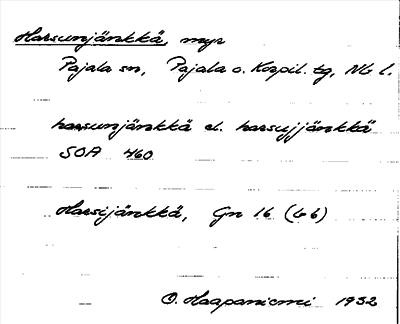 Harsunjänkkä, myr
Pajala sn, Pajala o. Korpil. tg, Nb l.
harsunjänkkä el. harsujjänkkä
SOA 460
Harsijänkkä, Gn 16 (b6)
O. Haapaniemi 1932